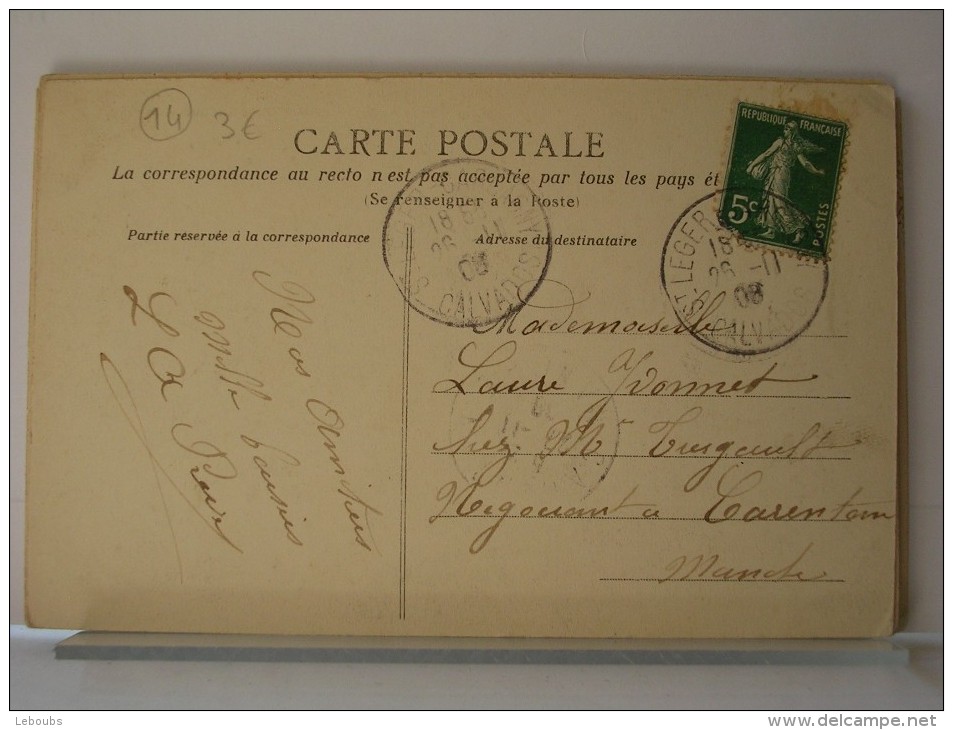 14 3€
CARTE POSTALE
La correspondance au recto n'est pas acceptée par tous les pays ét
(Se renseigner à la Poste)
REPUBLIQUE FRANÇAISE
5c
POSTES
ST LEGER
18
26 -11
08
CALVADOS
18
26 -11
08
CALVADOS
Partie réservée à la correspondance
Nos Amities
mille baisies
L A
Adresse du destinataire
Mademoiselle
Laure Yvonnet
chez Mr Turgault
Négociant a Carentan
Manche
Leboubs
www.delcampe.net